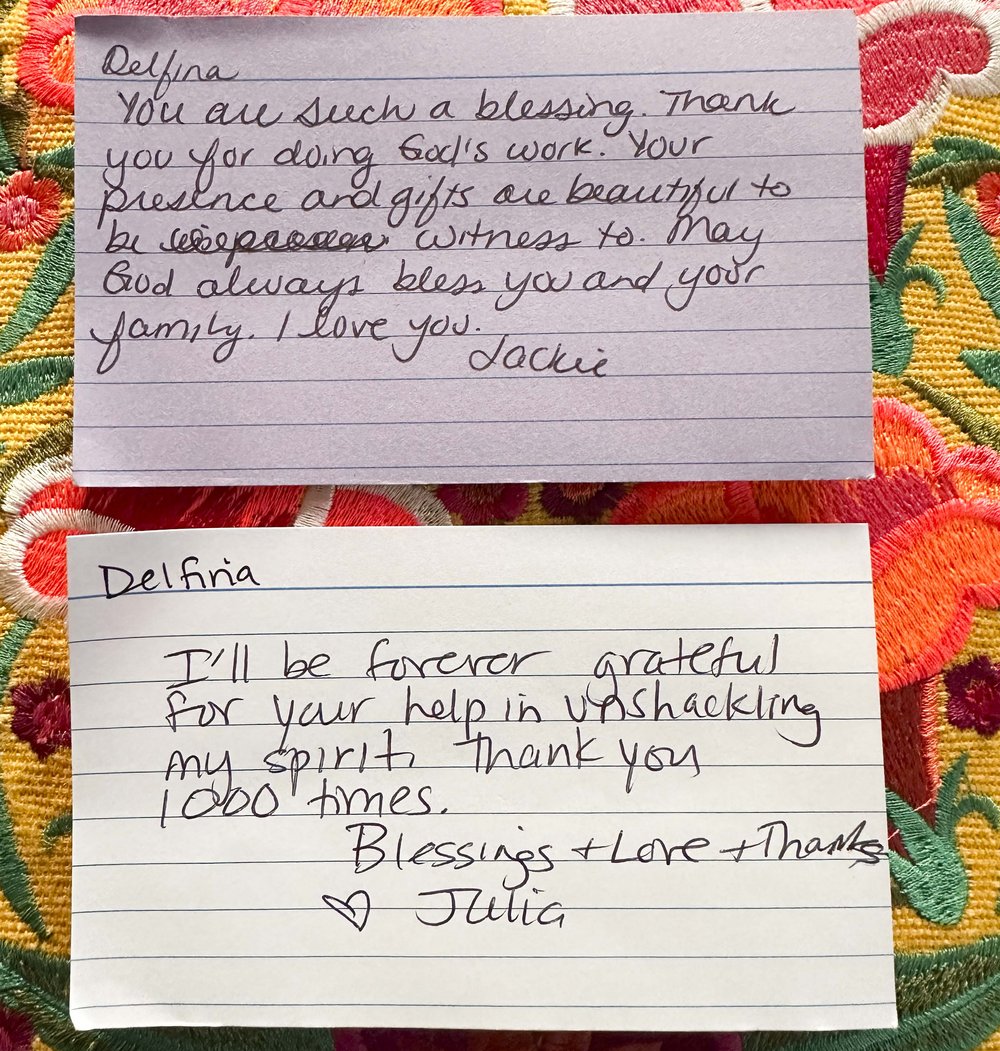 Delfina
You are such a blessing. Thank
you for doing God's work. Your
presence and gifts are beautiful to
be witness to. May
God always bless you and your
family. I love you.
Jackie
Delfina
I'll be forever grateful
for your help in unshackling
my spirit. Thank you
1000 times.
Blessings + Love + Thanks
♡ Julia